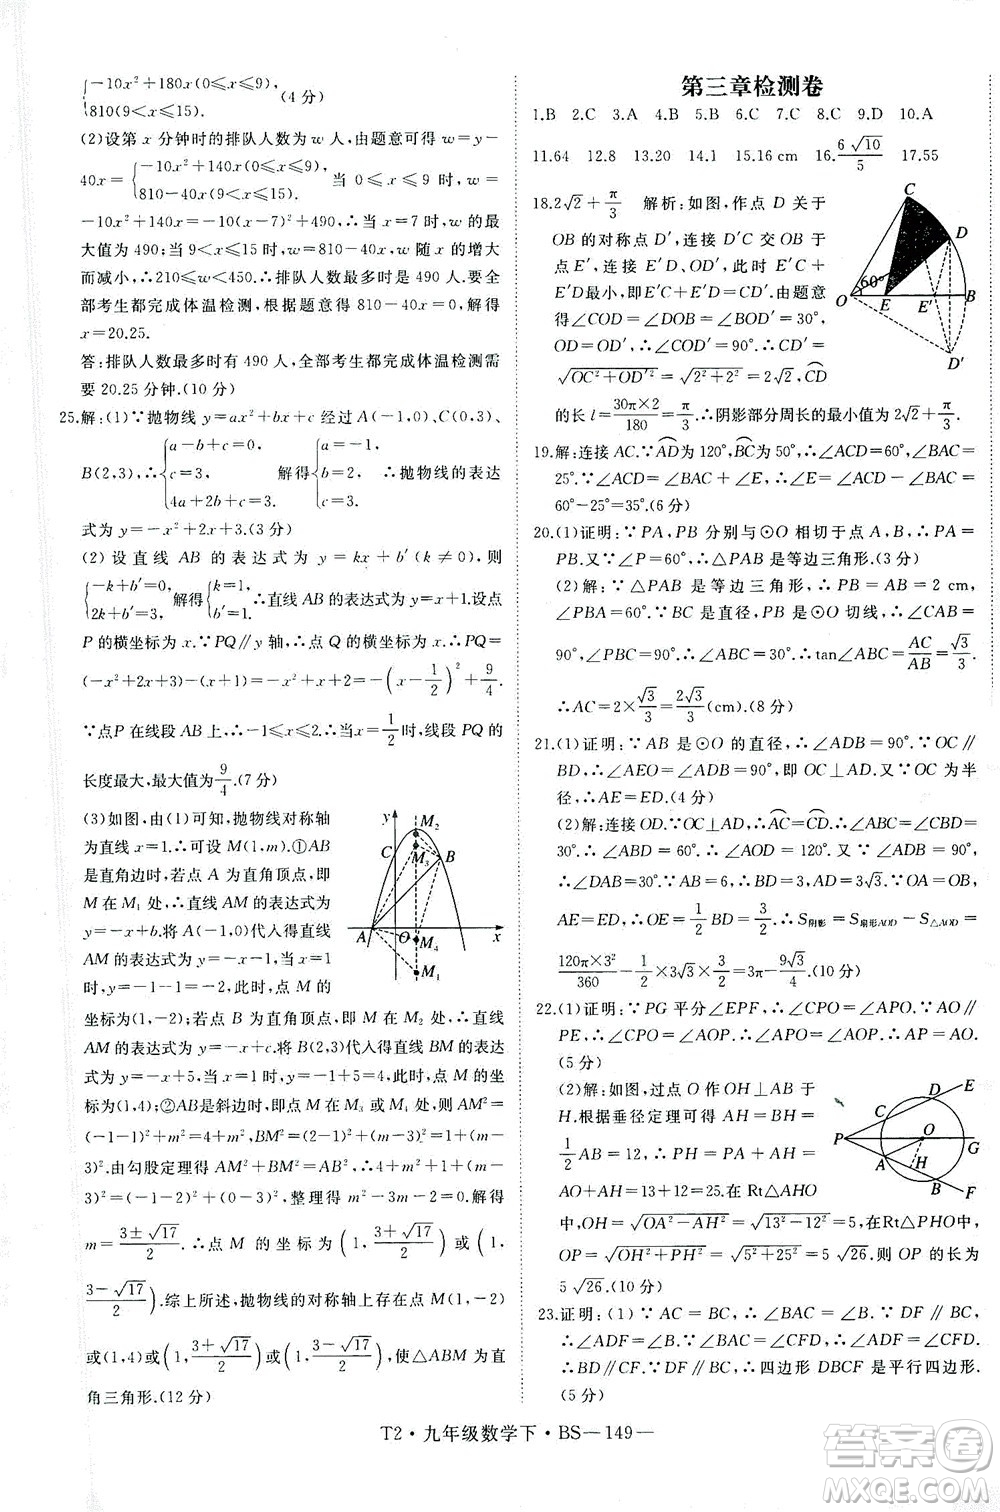 {−10x²+180x(0≤x≤9),
810(9<x≤15). (4分)
(2)设第 x 分钟时的排队人数为 w 人,由题意可得 w=y−
40x={−10x²+140x(0≤x≤9), 810−40x(9<x≤15). 当 0≤x≤9 时,w=
−10x²+140x=−10(x−7)²+490,∴当 x=7 时,w 的最
大值为 490;当 9<x≤15 时,w=810−40x,w 随 x 的增大
而减小,∴210≤w<450.∴排队人数最多时是 490 人.要
全部考生都完成体温检测,根据题意得 810−40x=0,解得
x=20.25.
答:排队人数最多时有 490 人,全部考生都完成体温检测需
要 20.25 分钟.(10 分)
25.解:(1)∵抛物线 y=ax²+bx+c 经过 A(−1,0)、C(0,3)、
B(2,3),∴{a−b+c=0, c=3, 4a+2b+c=3, 解得{a=−1, b=2, c=3. ∴抛物线的表达
式为 y=−x²+2x+3.(3分)
(2) 设直线 AB 的表达式为 y=kx+b′(k≠0),则
{−k+b′=0, 2k+b′=3, 解得{k=1, b′=1. ∴直线 AB 的表达式为 y=x+1.设点
P 的横坐标为 x.∵PQ∥y 轴,∴点 Q 的横坐标为 x.∴PQ=
(−x²+2x+3)−(x+1)=−x²+x+2=−(x−1/2)²+9/4.
∵点P 在线段 AB 上,∴−1≤x≤2.∴当 x=1/2时,PQ 的
长度最大,最大值为9/4.(7 分)
(3)如图,由(1)可知,抛物线对称轴
为直线 x=1.∴可设 M(1,m).①AB
是直角边时,若点 A 为直角顶点,则
点 M 在 M₁ 处,设直线 AM 的表达式
为 y=−x+b.将 A(−1,0)代入得直线
AM 的表达式为 y=−x−1.当 x=1
时,y=−1−1=−2,此时,点 M 的
坐标为(1,−2);若点 B 为直角顶点,则点 M 在 M₂ 处,设直线
AM 的表达式为 y=−x+c.将 B(2,3)代入得直线 BM 的表达
式为 y=−x+5,当 x=1 时,y=−1+5=4,此时,点 M 的坐
标为(1,4);②AB是斜边时,则点 M 在 M₃ 或 M₄ 处.∵AM²=
(−1−1)²+m²=4+m²,BM²=(2−1)²+(m−3)²=1+(m−3)²
.由勾股定理得 AM²+BM²=AB²,∴4+m²+1+(m−3)²=(2+1)²+3²,整理得 m²−3m−2=0.解得
m=(3±√17)/2.∴点 M 的坐标为(1,(3+√17)/2)或(1,
(3−√17)/2).综上所述,抛物线的对称轴上存在点 M(1,−2)
或(1,4)或(1,(3+√17)/2)或(1,(3−√17)/2),使△ABM 为直
角三角形.(12 分)
y
M₂
C
M₃
B
A
O
M₄
x
M₁
第三章检测卷
1.B 2.C 3.A 4.B 5.C 6.C 7.C 8.C 9.D 10.A
11.64 12.8 13.20 14.1 15.16 cm 16.6√10/5 17.55
18.2√2+π/3 解析:如图,作点 D 关于
OB 的对称点 D′,连接 D′C 交 OB 于
点 E′,连接 E′D、OD′,此时 E′C+
E′D最小,即 E′C+E′D=CD′.由题意
得∠COD=∠DOB=∠BOD′=30°,
OD=OD′=2,∴∠COD′=90°.∴CD′
=√(OC²+OD′²)=√(2²+2²)=2√2,CD
的长 l=30π×2/180=π/3.∴阴影部分周长的最小值为 2√2+π/3.
C
D
60°
O
E
E′
B
D′
19.解:连接 AC.∵AD为 120°,BC为 50°,∴∠ACD=60°,∠BAC=
25°.∵∠ACD=∠BAC+∠E,∴∠E=∠ACD−∠BAC=
60°−25°=35°.(6 分)
20.(1)证明:∵PA,PB 分别与⊙O 相切于点 A、B,∴PA=
PB.又∵∠P=60°,∴△PAB 是等边三角形.(3 分)
(2)解:∵△PAB 是等边三角形,∴PB=AB=2 cm,
∠PBA=60°.∵BC 是直径,PB 是⊙O 切线,∴∠CAB=
90°,∠PBC=90°.∴∠ABC=30°.∴tan∠ABC=AC/AB=√3/3.
∴AC=2×√3/3=2√3/3(cm).(8 分)
21.(1)证明:∵AB 是⊙O 的直径,∴∠ADB=90°.∵OC∥
BD,∴∠AEO=∠ADB=90°,即 OC⊥AD.又∵OC 为半
径,∴AE=ED.(4 分)
(2)解:连接 OD.∵OC⊥AD,∴AC=CD.∴∠ABC=∠CBD=
30°.∴∠ABD=60°,∴∠AOD=120°.∵OA=OD,
∴∠DAB=30°.∵AB=6,∴BD=3,AD=3√3.∵OA=OB,
AE=ED,∴OE=1/2BD=3/2.∴S阴影=S扇形AOD−S△AOD=
120π×3²/360−1/2×3√3×3/2=3π−9√3/4.(10 分)
22.(1)证明:∵PG 平分∠EPF,∴∠CPO=∠APO.∵AO∥
PE,∴∠CPO=∠AOP.∴∠APO=∠AOP,∴PA=AO.
(5 分)
(2)解:如图,过点 O 作 OH⊥AB 于
H.根据垂径定理可得 AH=BH=
1/2AB=12,∴PH=PA+AH=
AO+AH=13+12=25.在 Rt△AHO
中,OH=√(OA²−AH²)=√(13²−12²)=5.在Rt△PHO中,
OP=√(OH²+PH²)=√(5²+25²)=5√26.则 OP 的长为
5√26.(10 分)
E
D
C
P
O
G
A
H
B
F
23.证明:(1)∵AC=BC,∴∠BAC=∠B.∵DF∥BC,
∴∠ADF=∠B.∵∠BAC=∠CFD,∴∠ADF=∠CFD,
∴BD∥CF.∵DF∥BC,∴四边形 DBCF 是平行四边形.
(5 分)
T2・九年级数学下・BS—149—
答案圈
MXQE.COM